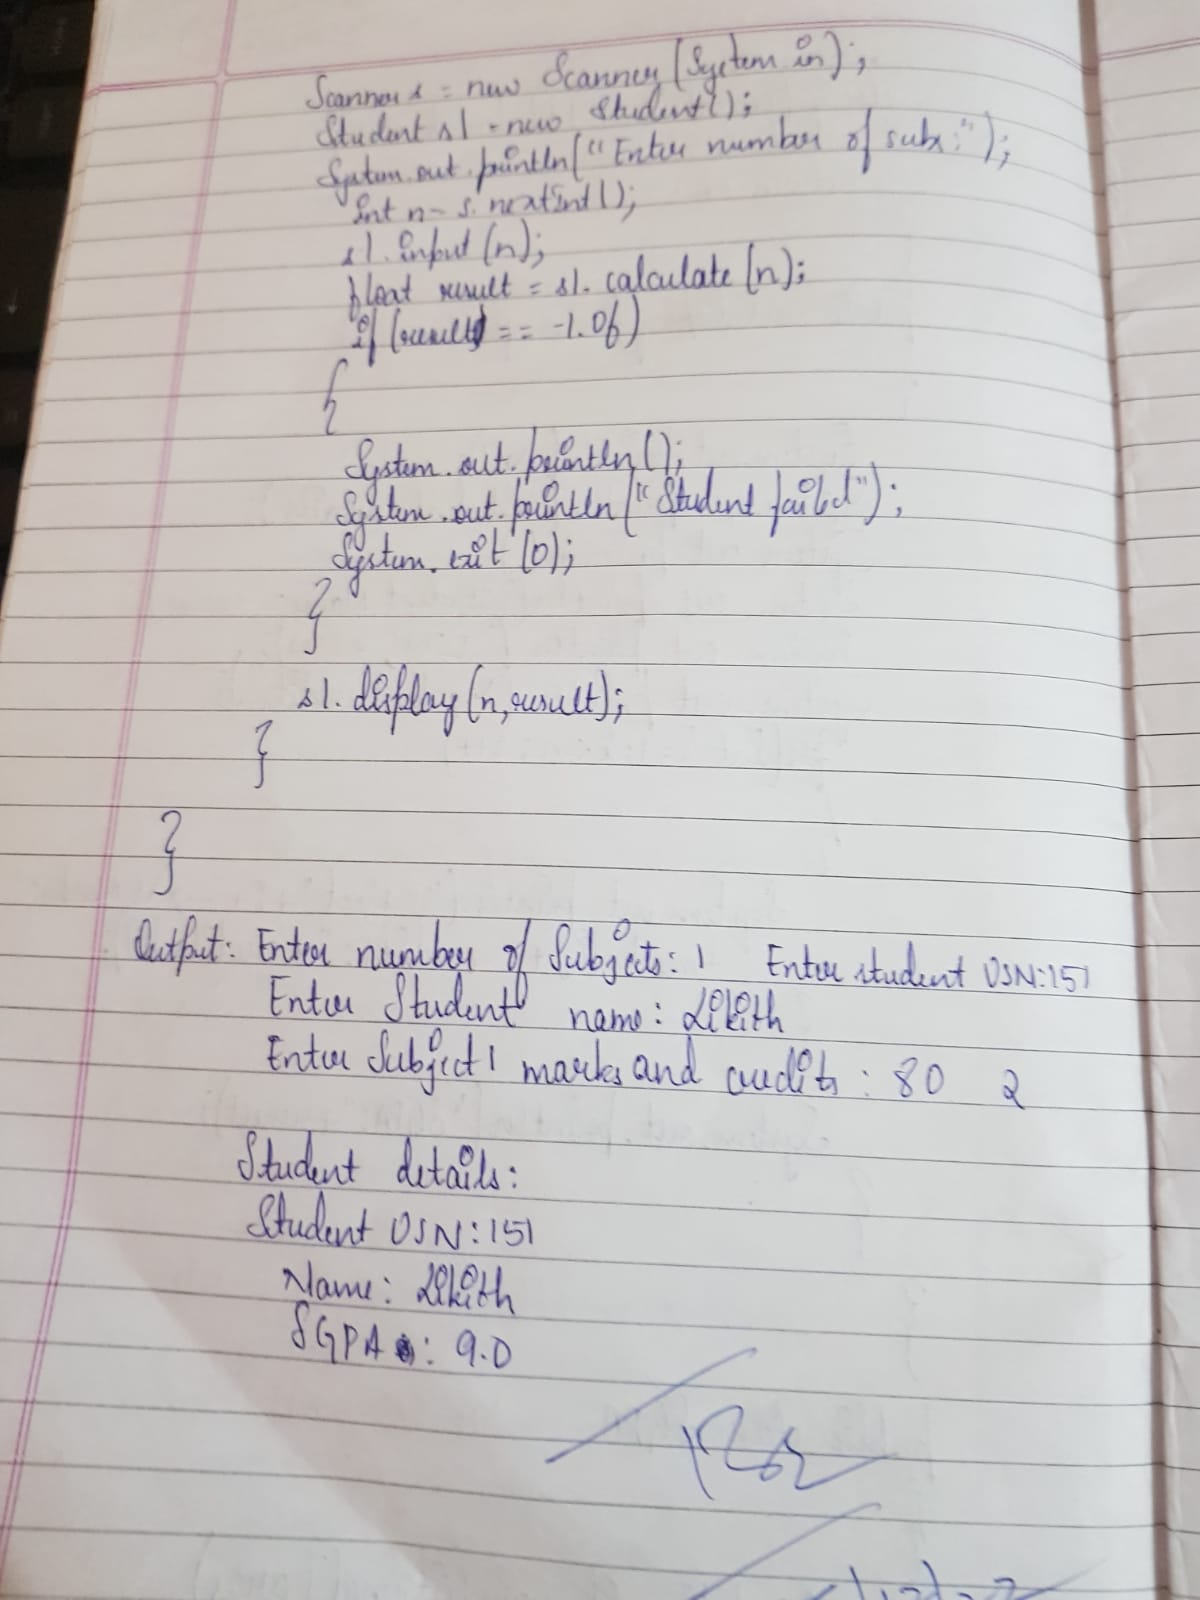 Scanner s = new Scanner (System in);
Student s1 = new Student();
System.out.println("Enter number of subx:");
int n = s. nextInt();
s1.input (n);
float result = s1. calculate (n);
if (result == -1.0f)
{
System.out.println();
System.out.println ("Student failed");
System.exit (0);
}
s1. display (n, result);
}
}
Output: Enter number of Subjects: 1 Enter student USN:151
Enter Student name: Likith
Enter Subject1 marks and credits : 80 2
Student details:
Student USN:151
Name: Likith
SGPA : 9.0